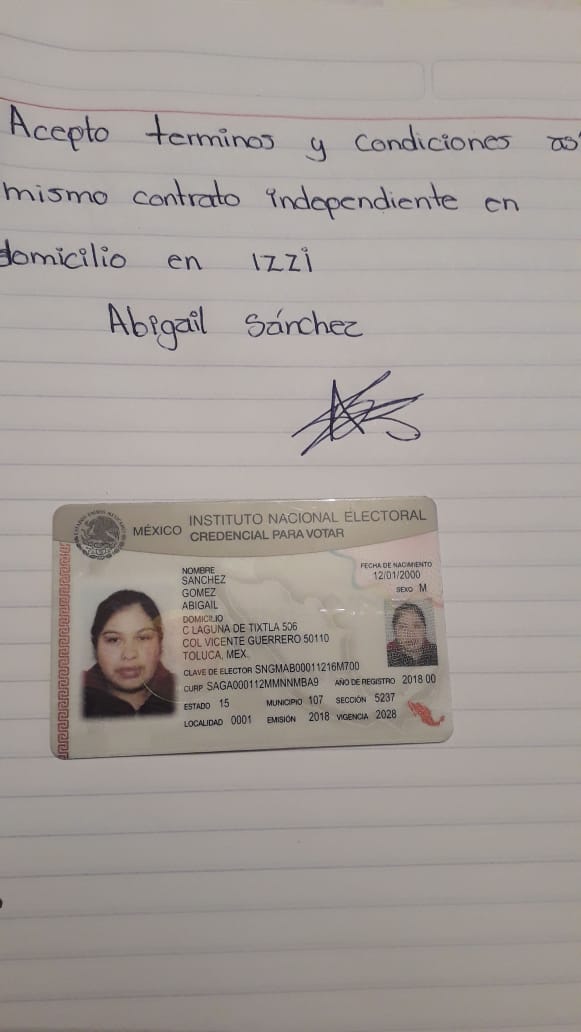 Acepto terminos y condiciones as
mismo contrato independiente en
domicilio en IZZI
Abigail Sánchez
MÉXICO INSTITUTO NACIONAL ELECTORAL
CREDENCIAL PARA VOTAR
NOMBRE
SANCHEZ
GOMEZ
ABIGAIL
FECHA DE NACIMIENTO
12/01/2000
SEXO M
DOMICILIO
C LAGUNA DE TIXTLA 506
COL VICENTE GUERRERO 50110
TOLUCA, MEX.
CLAVE DE ELECTOR SNGMAB00011216M700
CURP SAGA000112MMNNMBA9 AÑO DE REGISTRO 2018 00
ESTADO 15 MUNICIPIO 107 SECCIÓN 5237
LOCALIDAD 0001 EMISIÓN 2018 VIGENCIA 2028